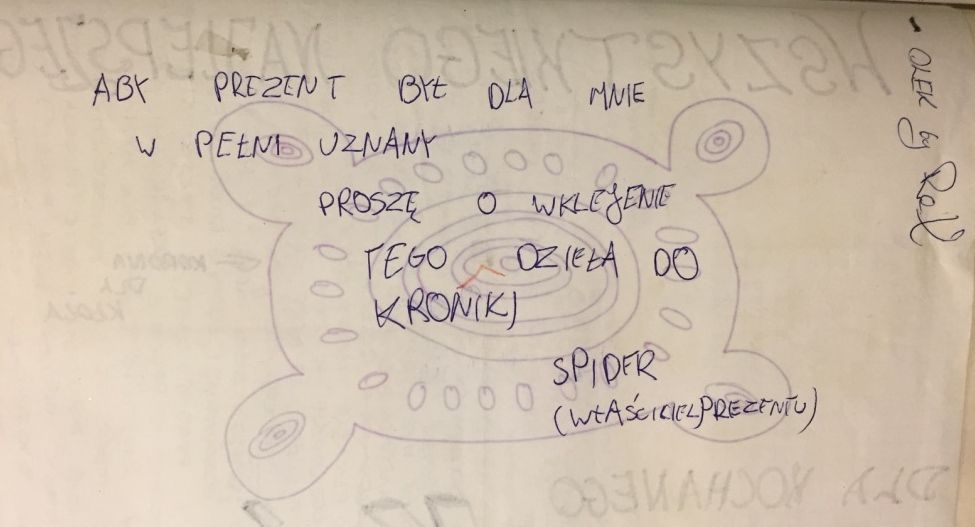 ABY PREZENT BYŁ DLA MNIE
W PEŁNI UZNANY
PROSZĘ O WKLEJENIE
TEGO DZIEŁA DO
KRONIKI
SPIDER
(WŁAŚCICIEL PREZENTU)
OLEK by
WSZYSTKIEGO NAJLEPSZEG
KORONA
DLA
KRÓLA
DLA KOCHANEGO